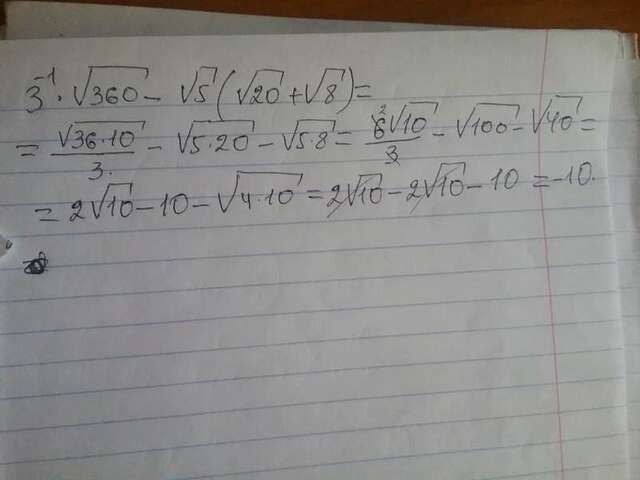 3⁻¹·√360 − √5(√20+√8)=
= √36·10/3. − √5·20 − √5·8 = ²6√10/3 − √100 − √40 =
= 2√10 − 10 − √4·10 = 2√10 − 2√10 − 10 = −10.